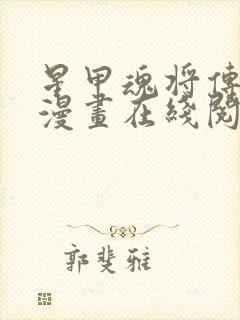 星甲魂将傳
漫畫在綫閱
郭斐雅